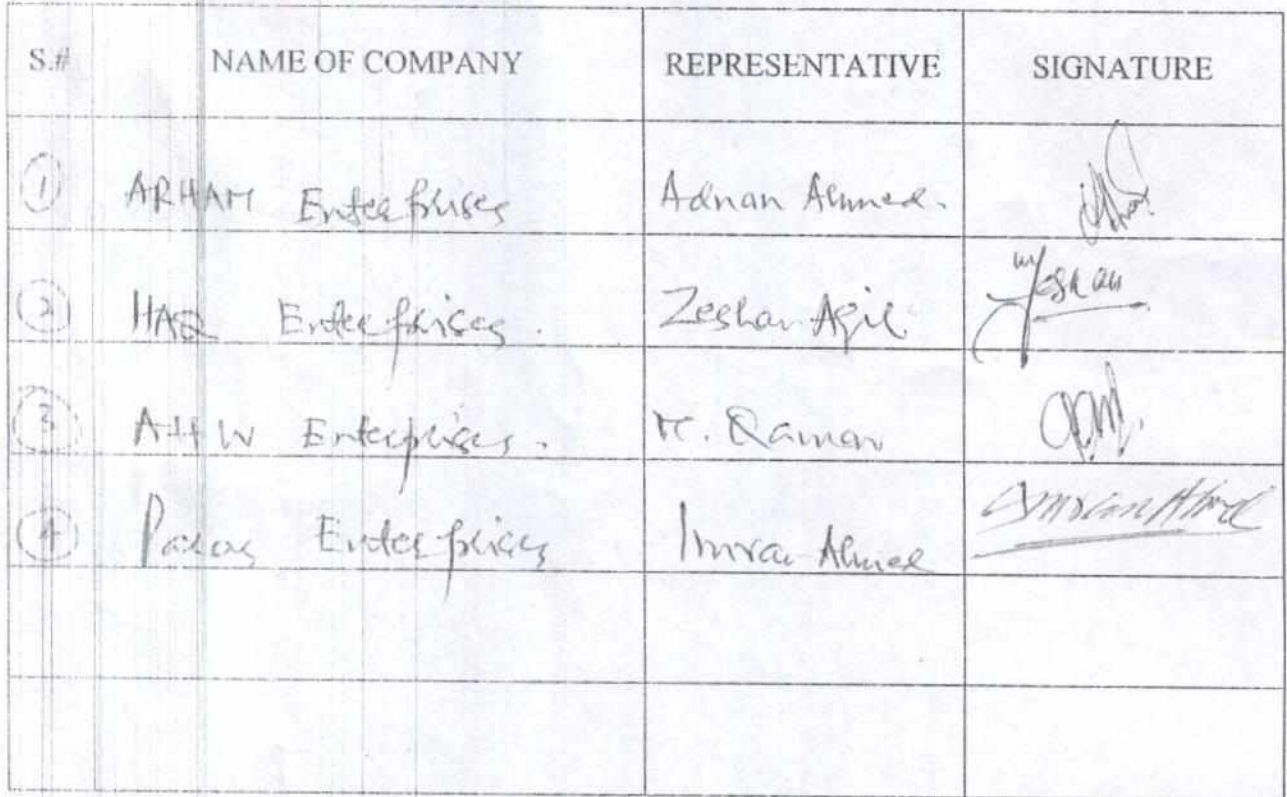 S.# NAME OF COMPANY REPRESENTATIVE SIGNATURE
1 ARHAM Enterprises Adnan Ahmed.
2 HAQ Enterprises. Zeshan Aqil. Zeshan
3 AHW Enterprises. M. Qamar
4 Paras Enterprises Imran Ahmed Imran Ahmed